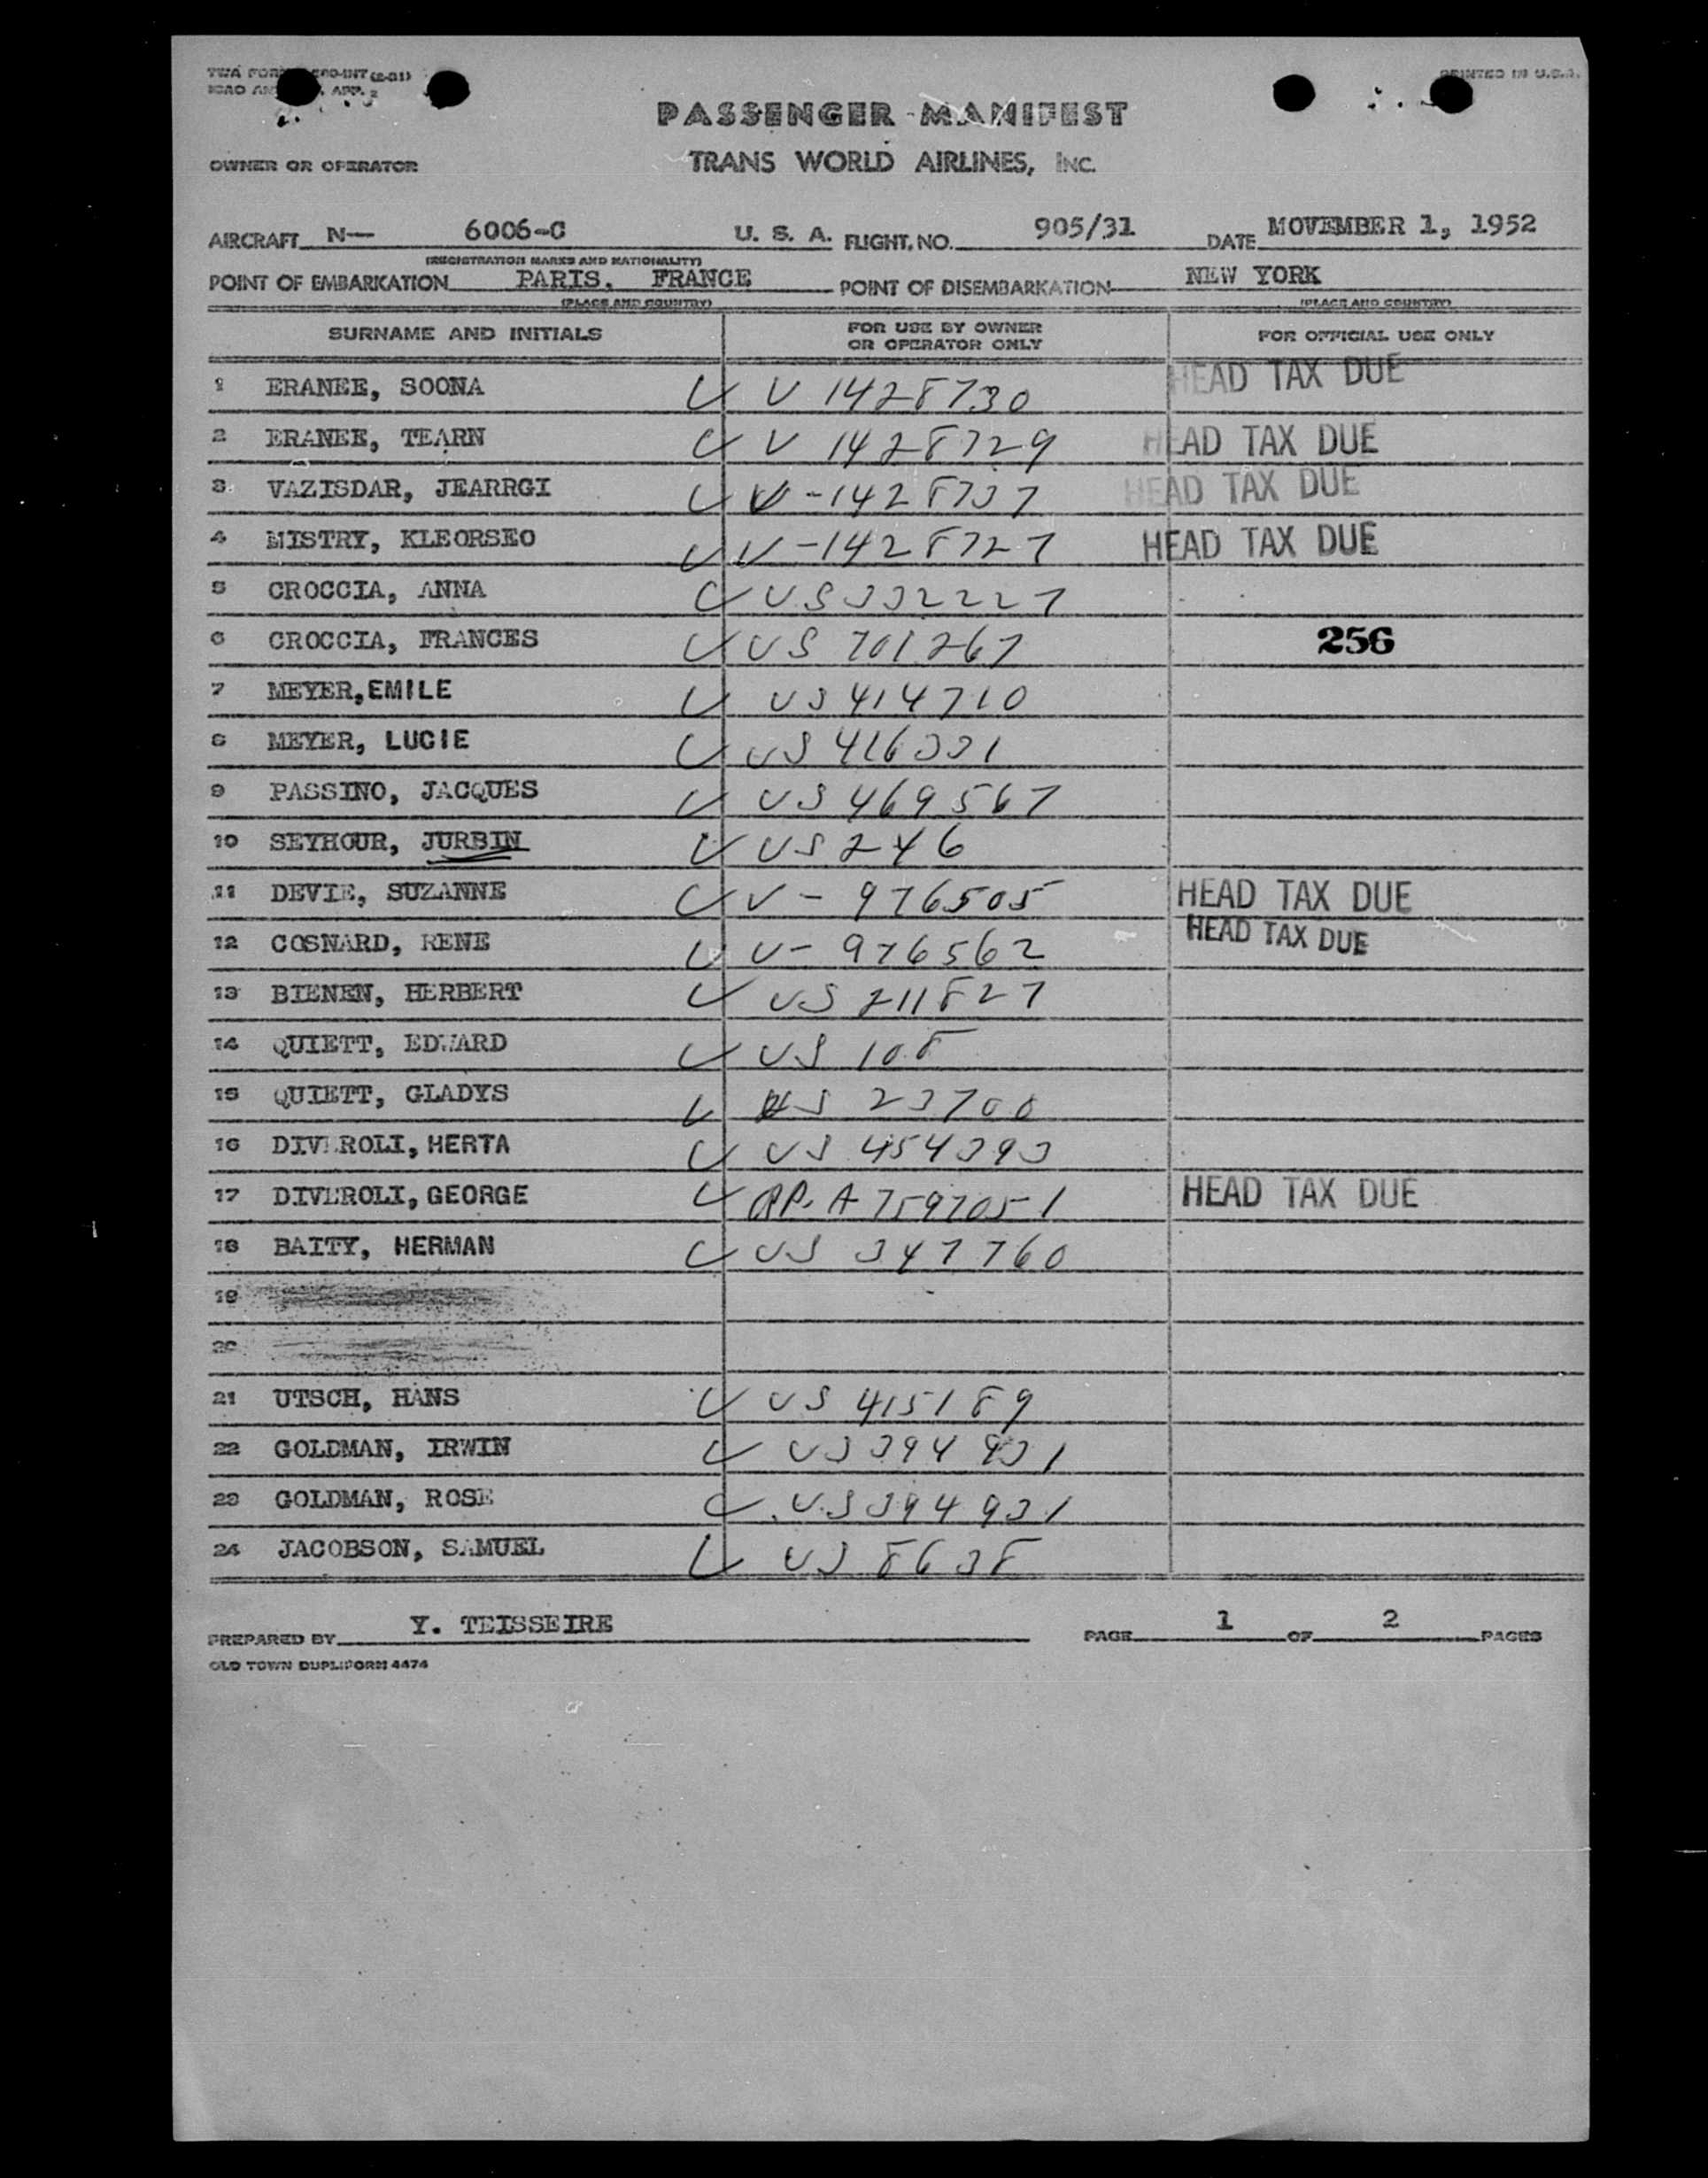 PRINTED IN U.S.A.
PASSENGER MANIFEST
OWNER OR OPERATOR TRANS WORLD AIRLINES, INC.
AIRCRAFT N— 6006-C U. S. A. FLIGHT. NO. 905/31 DATE MOVEMBER 1, 1952
(REGISTRATION MARKS AND NATIONALITY)
POINT OF EMBARKATION PARIS, FRANCE POINT OF DISEMBARKATION NEW YORK
(PLACE AND COUNTRY) (PLACE AND COUNTRY)
SURNAME AND INITIALS FOR USE BY OWNER OR OPERATOR ONLY FOR OFFICIAL USE ONLY
1 ERANEE, SOONA V 1428730 HEAD TAX DUE
2 ERANEE, TEARN V 1428729 HEAD TAX DUE
3 VAZISDAR, JEARRGI V-1428737 HEAD TAX DUE
4 MISTRY, KLEORSEO V-1428727 HEAD TAX DUE
5 CROCCIA, ANNA US 332227
6 CROCCIA, FRANCES US 701267 256
7 MEYER, EMILE US 414710
8 MEYER, LUCIE US 416331
9 PASSINO, JACQUES US 469567
10 SEYHOUR, JURBIN US 246
11 DEVIE, SUZANNE V- 976505 HEAD TAX DUE
12 COSNARD, RENE V- 976562 HEAD TAX DUE
13 BIENEN, HERBERT US 211827
14 QUIETT, EDWARD US 108
15 QUIETT, GLADYS US 23700
16 DIVEROLI, HERTA US 454393
17 DIVEROLI, GEORGE PP. A 7597051 HEAD TAX DUE
18 BAITY, HERMAN US 347760
19
20
21 UTSCH, HANS US 415189
22 GOLDMAN, IRWIN US 394931
23 GOLDMAN, ROSE US 394931
24 JACOBSON, SAMUEL US 8638
PREPARED BY Y. TEISSEIRE PAGE 1 OF 2 PAGES
OLD TOWN DUPLIFORM 4474